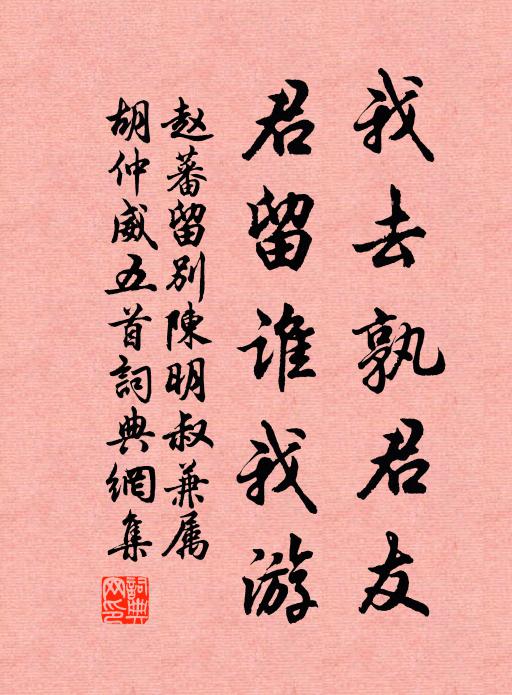 我去孰君友
君留谁我游
赵蕃留别陳明叔兼属
胡仲威五首詞典網集
詞典網印